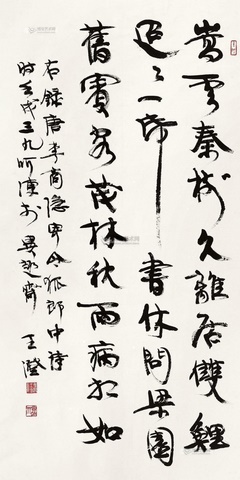 嵩雲秦樹久離居雙鯉
迢迢一紙書休問梁園
舊賓客茂林秋雨病相如
右録唐李商隐寄令狐郎中诗
时壬戌三九呵凍於
王澄